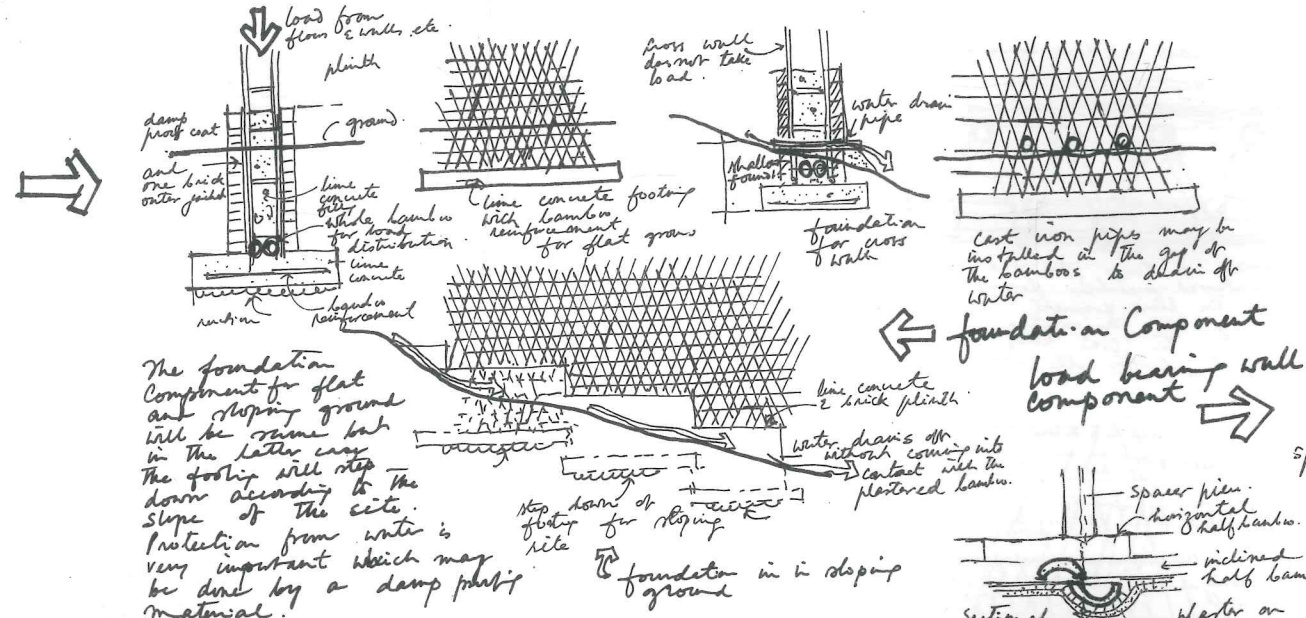 load from
floors & walls etc.
plinth
damp
proof coat
ground.
and
one brick
outer jacket
lime
concrete
fill
whole bamboo
for load
distribution.
lime
concrete
bamboo
reinforcement
lime concrete footing
with bamboo
reinforcement
for flat ground
cross wall
does not take
load.
water drain
pipe
shallow
found
foundation
for cross
walls
cast iron pipes may be
installed in the gap of
the bamboos to drain off
water
foundation Component
load bearing wall
component
The foundation
Component for flat
and sloping ground
will be same but
in the latter case
the footing will step
down according to the
slope of the site.
Protection from water is
very important which may
be done by a damp proofing
material.
lime concrete
& brick plinth.
water drains off
without coming into
contact with the
plastered bamboo.
step down of
footing for sloping
site
foundation in in sloping
ground
sp
spacer piece.
horizontal
half bamboo.
inclined
half bam
section of
plaster on